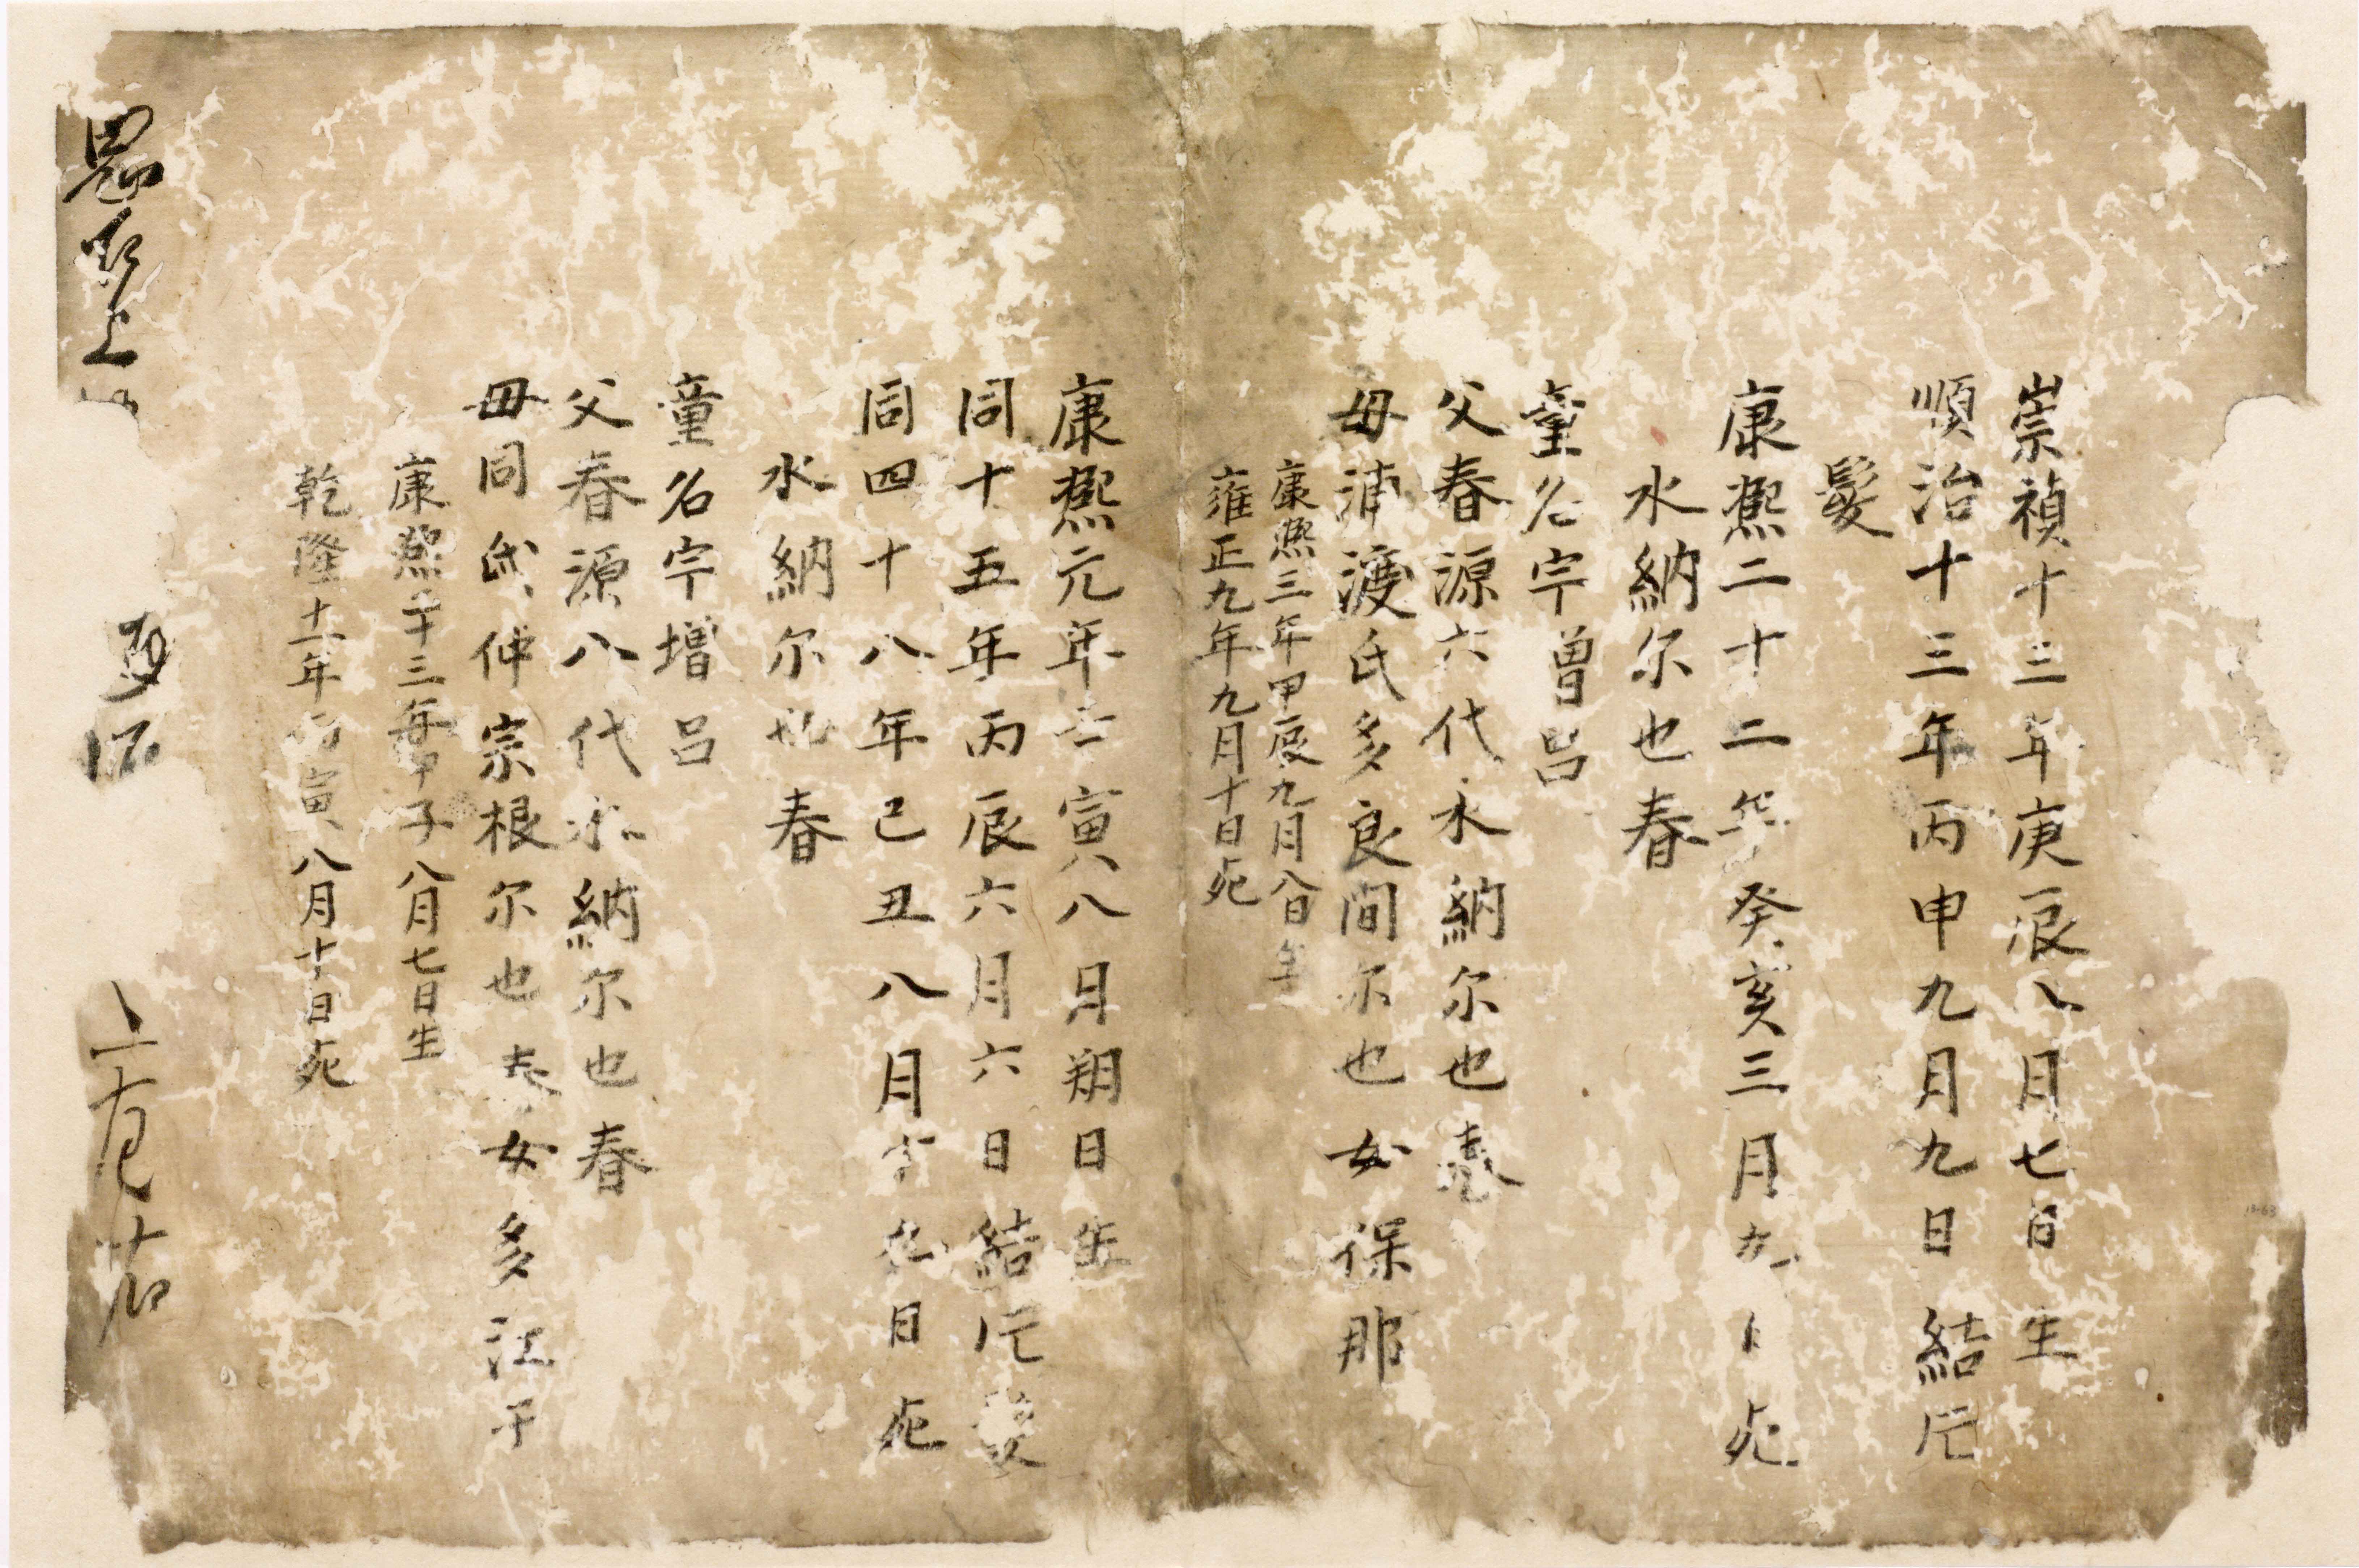 崇禎十三年庚辰八月七日生
順治十三年丙申九月九日結片
髪
康熙二十二年癸亥三月九日死
水納尓也春
童名宇曽呂
父春源六代水納尓也春
母浦渡氏多良間尓也女保那
康熙三年甲辰九月八日生
雍正九年九月十日死
康熙元年壬寅八月朔日生
同十五年丙辰六月六日結片髪
同四十八年己丑八月日死
水納尓也春
童名宇増呂
父春源八代水納尓也春
母同氏仲宗根尓也春女多江于
康熙二十三年甲子八月七日生
乾隆十一年丙寅八月十日死